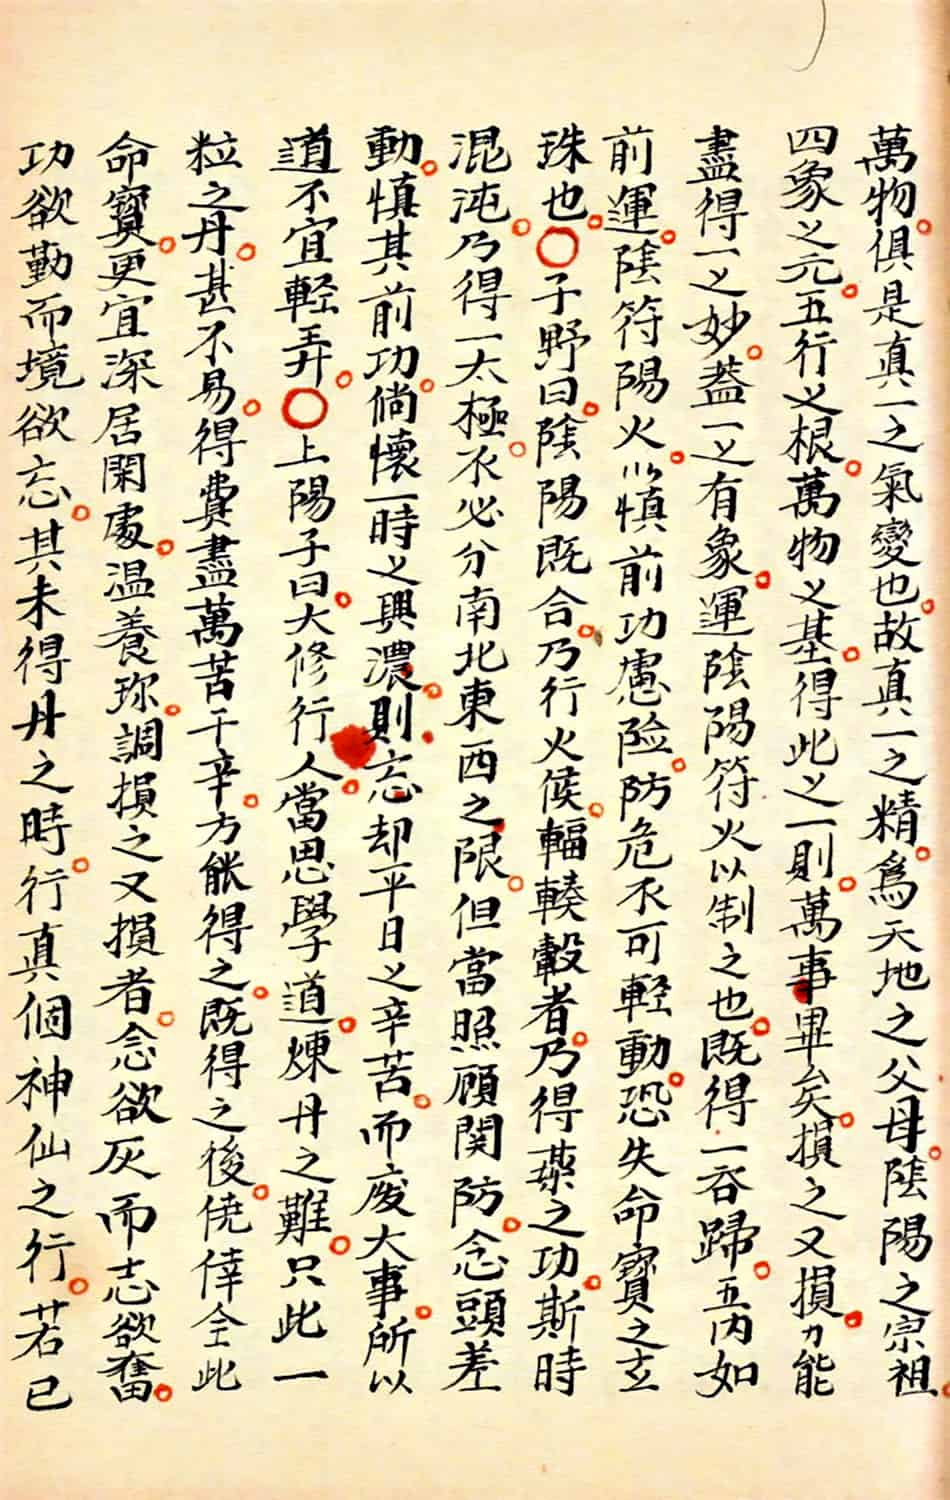 萬物俱是真一之氣變也故真一之精爲天地之父母陰陽之宗祖
四象之元五行之根萬物之基得此之一則萬事畢矣損之又損乃能
盡得一之妙蓋一之有象運陰陽符火以制之也既得一吞歸五内如
前運陰符陽火以慎前功慮險防危不可輕動恐失命寶之玄
珠也〇子野曰陰陽既合乃行火候輻輳轂者乃得藥之功斯時
混沌乃得一太極不必分南北東西之限但當照顧関防念頭差
動慎其前功倘懷一時之興濃則忘却平日之辛苦而廢大事所以
道不宜輕弄〇上陽子曰大修行人當思學道煉丹之難只此一
粒之丹甚不易得費盡萬苦千辛方能得之既得之後僥倖全此
命寶更宜深居閑處温養珎調損之又損者念欲灰而志欲奮
功欲勤而境欲忘其未得丹之時行真個神仙之行若已